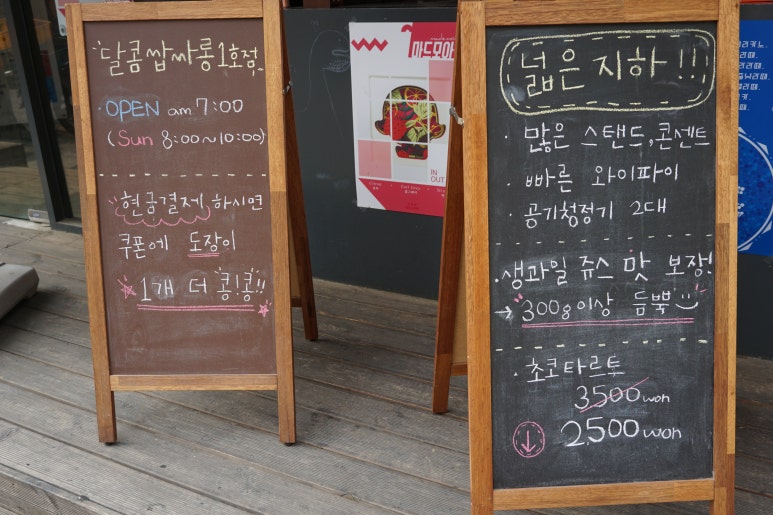 달콤쌉싸롱 1호점
OPEN am 7:00
(Sun 8:00~10:00)
현금결제 하시면
쿠폰에 도장이
1개 더 콩!콩!!
마드모아
IN
OUT
넓은 지하!!
· 많은 스탠드, 콘센트
· 빠른 와이파이
· 공기청정기 2대
· 생과일 쥬스 맛 보장!
→ 300g이상 듬뿍
· 초코타르트
3500 won
↓ 2,500 won